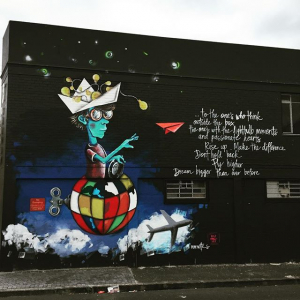 ...to the one's who think
outside the box
the one's with the lightbulb moments
and passionate hearts
Rise up. Make the difference
Don't hold back
Fly higher
Dream bigger than ever before